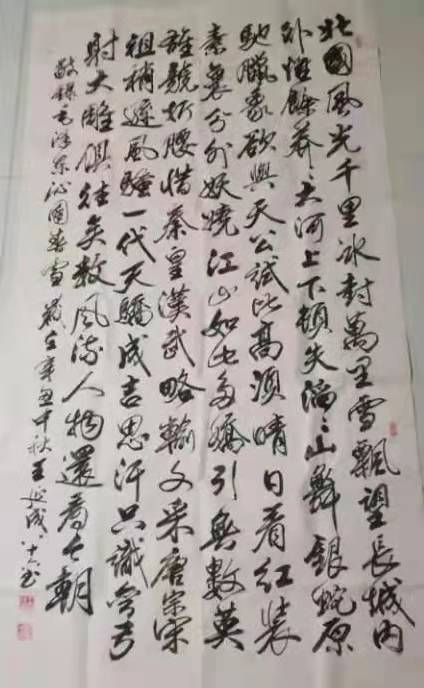 北國風光千里冰封萬里雪飄望長城内
外惟餘莽、大河上下頓失滔、山舞銀蛇原
馳臘象欲與天公試比高須晴日看紅裝
素裹分外妖嬈江山如此多嬌引無數英
雄競折腰惜秦皇漢武略輸文采唐宗宋
祖稍遜風騷一代天驕成吉思汗只識彎弓
射大雕俱往矣數風流人物還看今朝
敬録毛澤東沁園春雪 歲在辛丑中秋王延成書